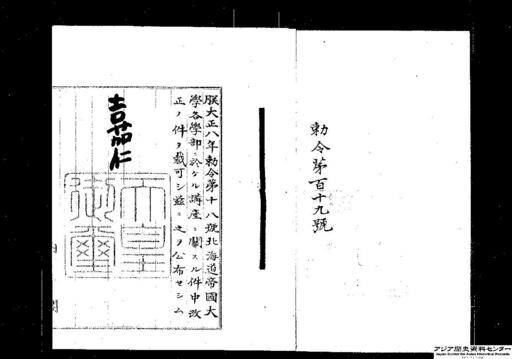 勅令第百十九號
朕大正八年勅令第十八號北海道帝國大
學各學部ニ於ケル講座ニ關スル件中改
正ノ件ヲ裁可シ茲ニ之ヲ公布セシム
嘉仁
天皇
御璽
内閣
アジア歴史資料センター
Japan Center for Asian Historical Records